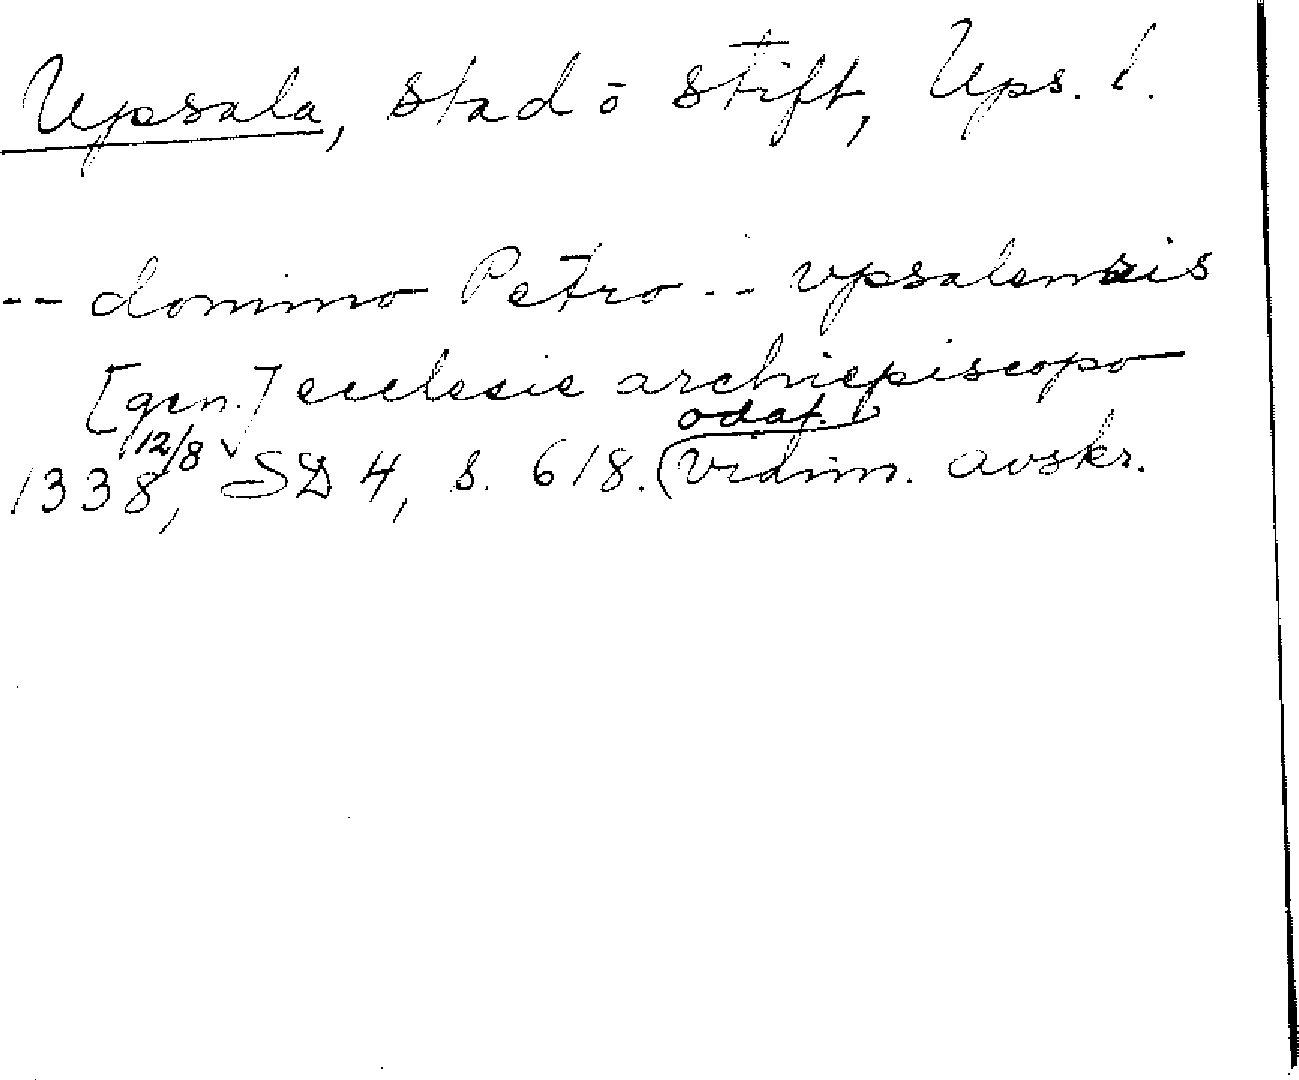 Upsala, stad o stift, Ups. l.
-- domino Petro -- vpsalensis
[gen.] ecclesie archiepiscopo
1338 12/8, SD 4, s. 618. (odat. vidim. avskr.